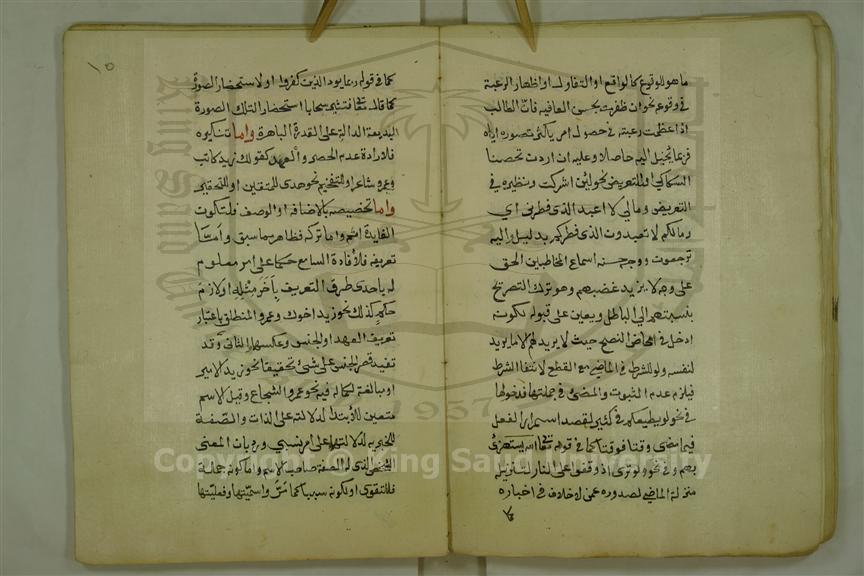 ما هو للوقوع كالواقع او التفاول او اظهار الرغبة
في وقوعه نحو ان ظفرت بحسن العاقبة فان الطالب
اذا عظمت رغبته في حصول امر يكثر تصوره اياه
فربما يخيل اليه حاصلا وعليه ان اردن تحصنا
السكاكي او للتعريض نحو لئن اشركت ونظيره في
التعريض ومالي لا اعبد الذي فطرني اي
ومالكم لا تعبدون الذي فطركم بدليل واليه
ترجعون ووجه حسنه اسماع المخاطبين الحق
على وجه لا يزيد غضبهم وهو ترك التصريح
بنسبتهم الى الباطل ويعين على قبوله لكونه
ادخل في امحاض النصح حيث لا يريد لهم الا ما يريد
لنفسه ولو للشرط في الماضي مع القطع لانتفا الشرط
فيلزم عدم الثبوت والمضي في جملتيها فدخولها
في نحو لو يطيعكم في كثير لقصد استمرار الفعل
فيما مضى وقتا فوقتا كما في قوله تعالى الله يستهزئ
بهم وفي نحو ولو ترى اذ وقفوا على النار لتنزيله
منزلة الماضي لصدوره عمن لا خلاف في اخباره
كما
١٥
كما في قوله ربما يود الذين كفروا او لاستحضار الصورة
كما قال تعالى فتثير سحابا استحضار التلك الصورة
البديعة الدالة على القدرة الباهرة واما تنكيره
فلارادة عدم الحصر والعهد كقولك زيد كاتب
وعمرو شاعر او للتفخيم نحو هدى للمتقين او للتحقير
واما تخصيصه بالاضافة او الوصف فلتكون
الفايدة اتم واما تركه فظاهر مما سبق واما
تعريفه فلافادة السامع حكما على امر معلوم
له باحدى طرق التعريف بآخر مثله او لازم
حكم كذلك نحو زيد اخوك وعمرو المنطلق باعتبار
تعريف العهد او الجنس وعكسهما والثاني وقد
تفيد قصر الجنس على شئ تحقيقا نحو زيد الامير
او مبالغة لكماله فيه نحو عمرو الشجاع وقيل الاسم
متعين للابتدا لدلالته على الذات والصفة
للخبرية لدلالتها على امر نسبي ورد بان المعنى
الشخص الذي له الصفة صاحب الاسم واما كونه جملة
فللتقوى او لكونه سببيا كما مر واسميتها وفعليتها
Copyright © King Saud University
1957